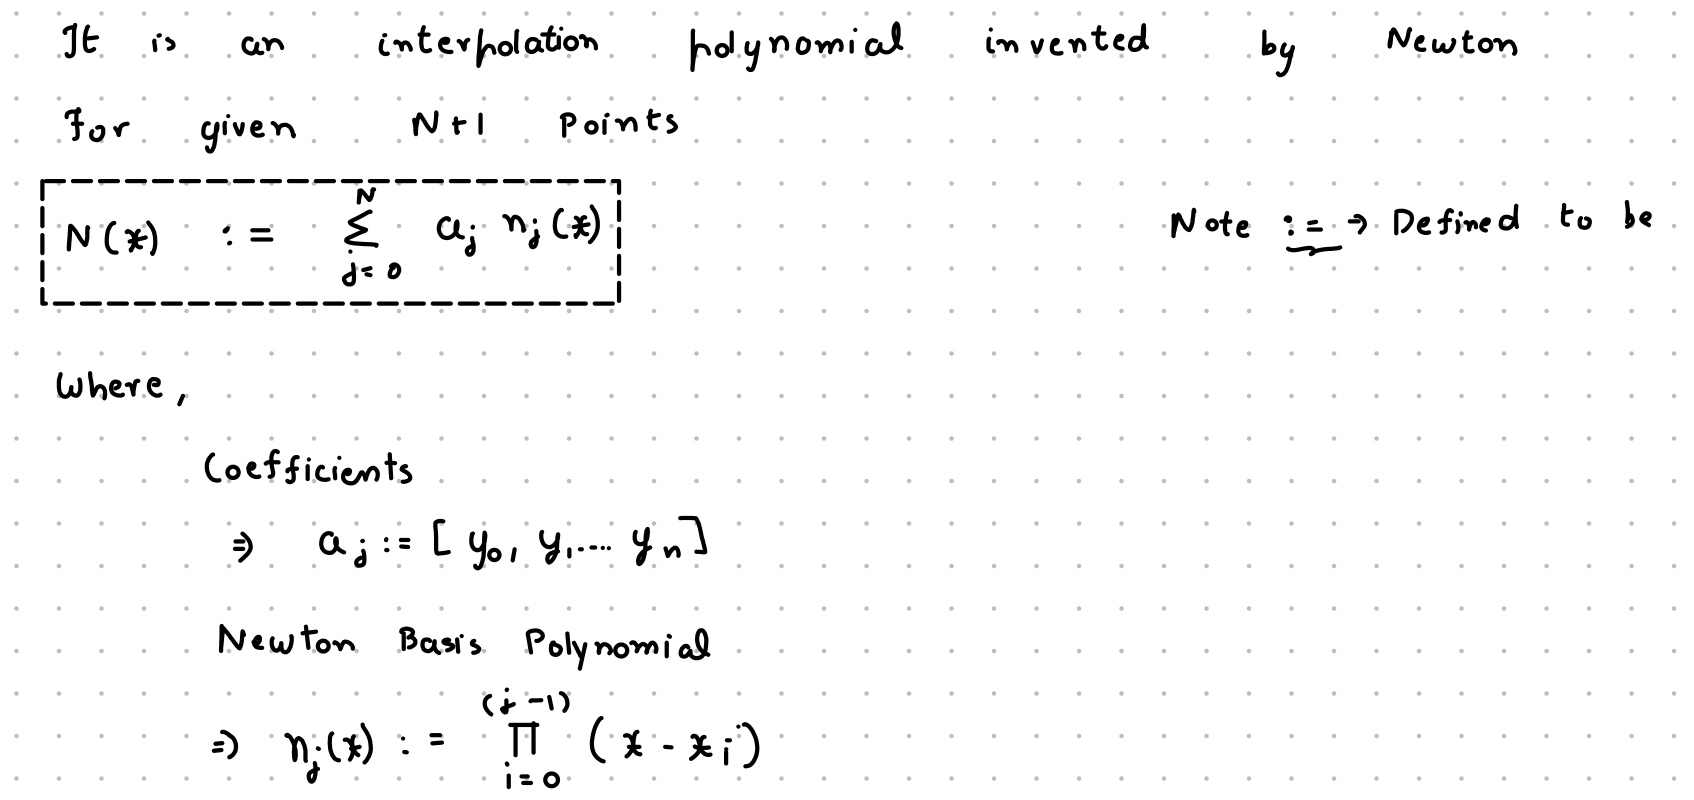 It is an interpolation polynomial invented by Newton
For given N+1 Points
N(x) := N Σ j=0 aj nj(x)
Note := → Defined to be
Where,
Coefficients
⇒ aj := [y0, y1.... yn]
Newton Basis Polynomial
⇒ nj(x) := (j-1) Π i=0 (x - xi)